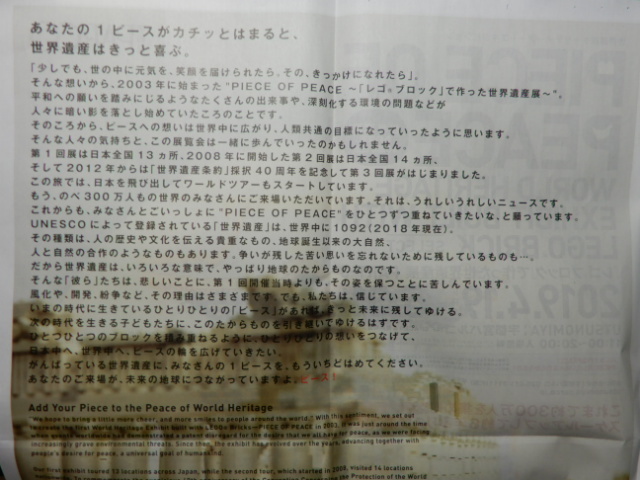 あなたの1ピースがカチッとはまると、
世界遺産はきっと喜ぶ。
「少しでも、世の中に元気を、笑顔を届けられたら。その、きっかけになれたら」。
そんな想いから、2003年に始まった"PIECE OF PEACE ～「レゴ®ブロック」で作った世界遺産展～"。
平和への願いを踏みにじるようなたくさんの出来事や、深刻化する環境の問題などが
人々に暗い影を落とし始めていたころのことです。
そのころから、ピースへの想いは世界中に広がり、人類共通の目標になっていったように思います。
そんな人々の気持ちと、この展覧会は一緒に歩んでいったのかもしれません。
第1回展は日本全国13ヵ所、2008年に開始した第2回展は日本全国14ヵ所、
そして2012年からは「世界遺産条約」採択40周年を記念して第3回展がはじまりました。
この旅では、日本を飛び出してワールドツアーもスタートしています。
もう、のべ300万人もの世界のみなさんにご来場いただいています。それは、うれしいうれしいニュースです。
これからも、みなさんとごいっしょに"PIECE OF PEACE"をひとつずつ重ねていきたいな、と願っています。
UNESCOによって登録されている「世界遺産」は、世界中に1092(2018年現在)。
その種類は、人の歴史や文化を伝える貴重なもの、地球誕生以来の大自然、
人と自然の合作のようなものもあります。争いが残した苦い思いを忘れないために残しているものも…。
だから世界遺産は、いろいろな意味で、やっぱり地球のたからものなのです。
そんな「彼ら」たちは、悲しいことに、第1回開催当時よりも、その姿を保つことに苦しんでいます。
風化や、開発、紛争など、その理由はさまざまです。でも、私たちは、信じています。
いまの時代に生きているひとりひとりの「ピース」があれば、きっと未来に残してゆける。
次の時代を生きる子どもたちに、このたからものを引き継いでゆけるはずです。
ひとつひとつのブロックを積み重ねるように、ひとりひとりの想いをつなげて、
日本中へ、世界中へ、ピースの輪を広げていきたい。
がんばっている世界遺産に、みなさんの1ピースを、もういちどはめてください。
あなたのご来場が、未来の地球につながっていますよ。ピース!
Add Your Piece to the Peace of World Heritage
"We hope to bring a little more cheer, and more smiles to people around the world." With this sentiment, we set out
to create the first World Heritage Exhibit built with LEGO® Bricks—PIECE OF PEACE in 2003. It was just around the time
when events worldwide had demonstrated a patent disregard for the desire that we all have for peace, as we were facing
increasingly grave environmental threats. Since then, the exhibit has evolved over the years, advancing together with
people's desire for peace, a universal goal of humankind.
Our first exhibit toured 13 locations across Japan, while the second tour, which started in 2008, visited 14 locations